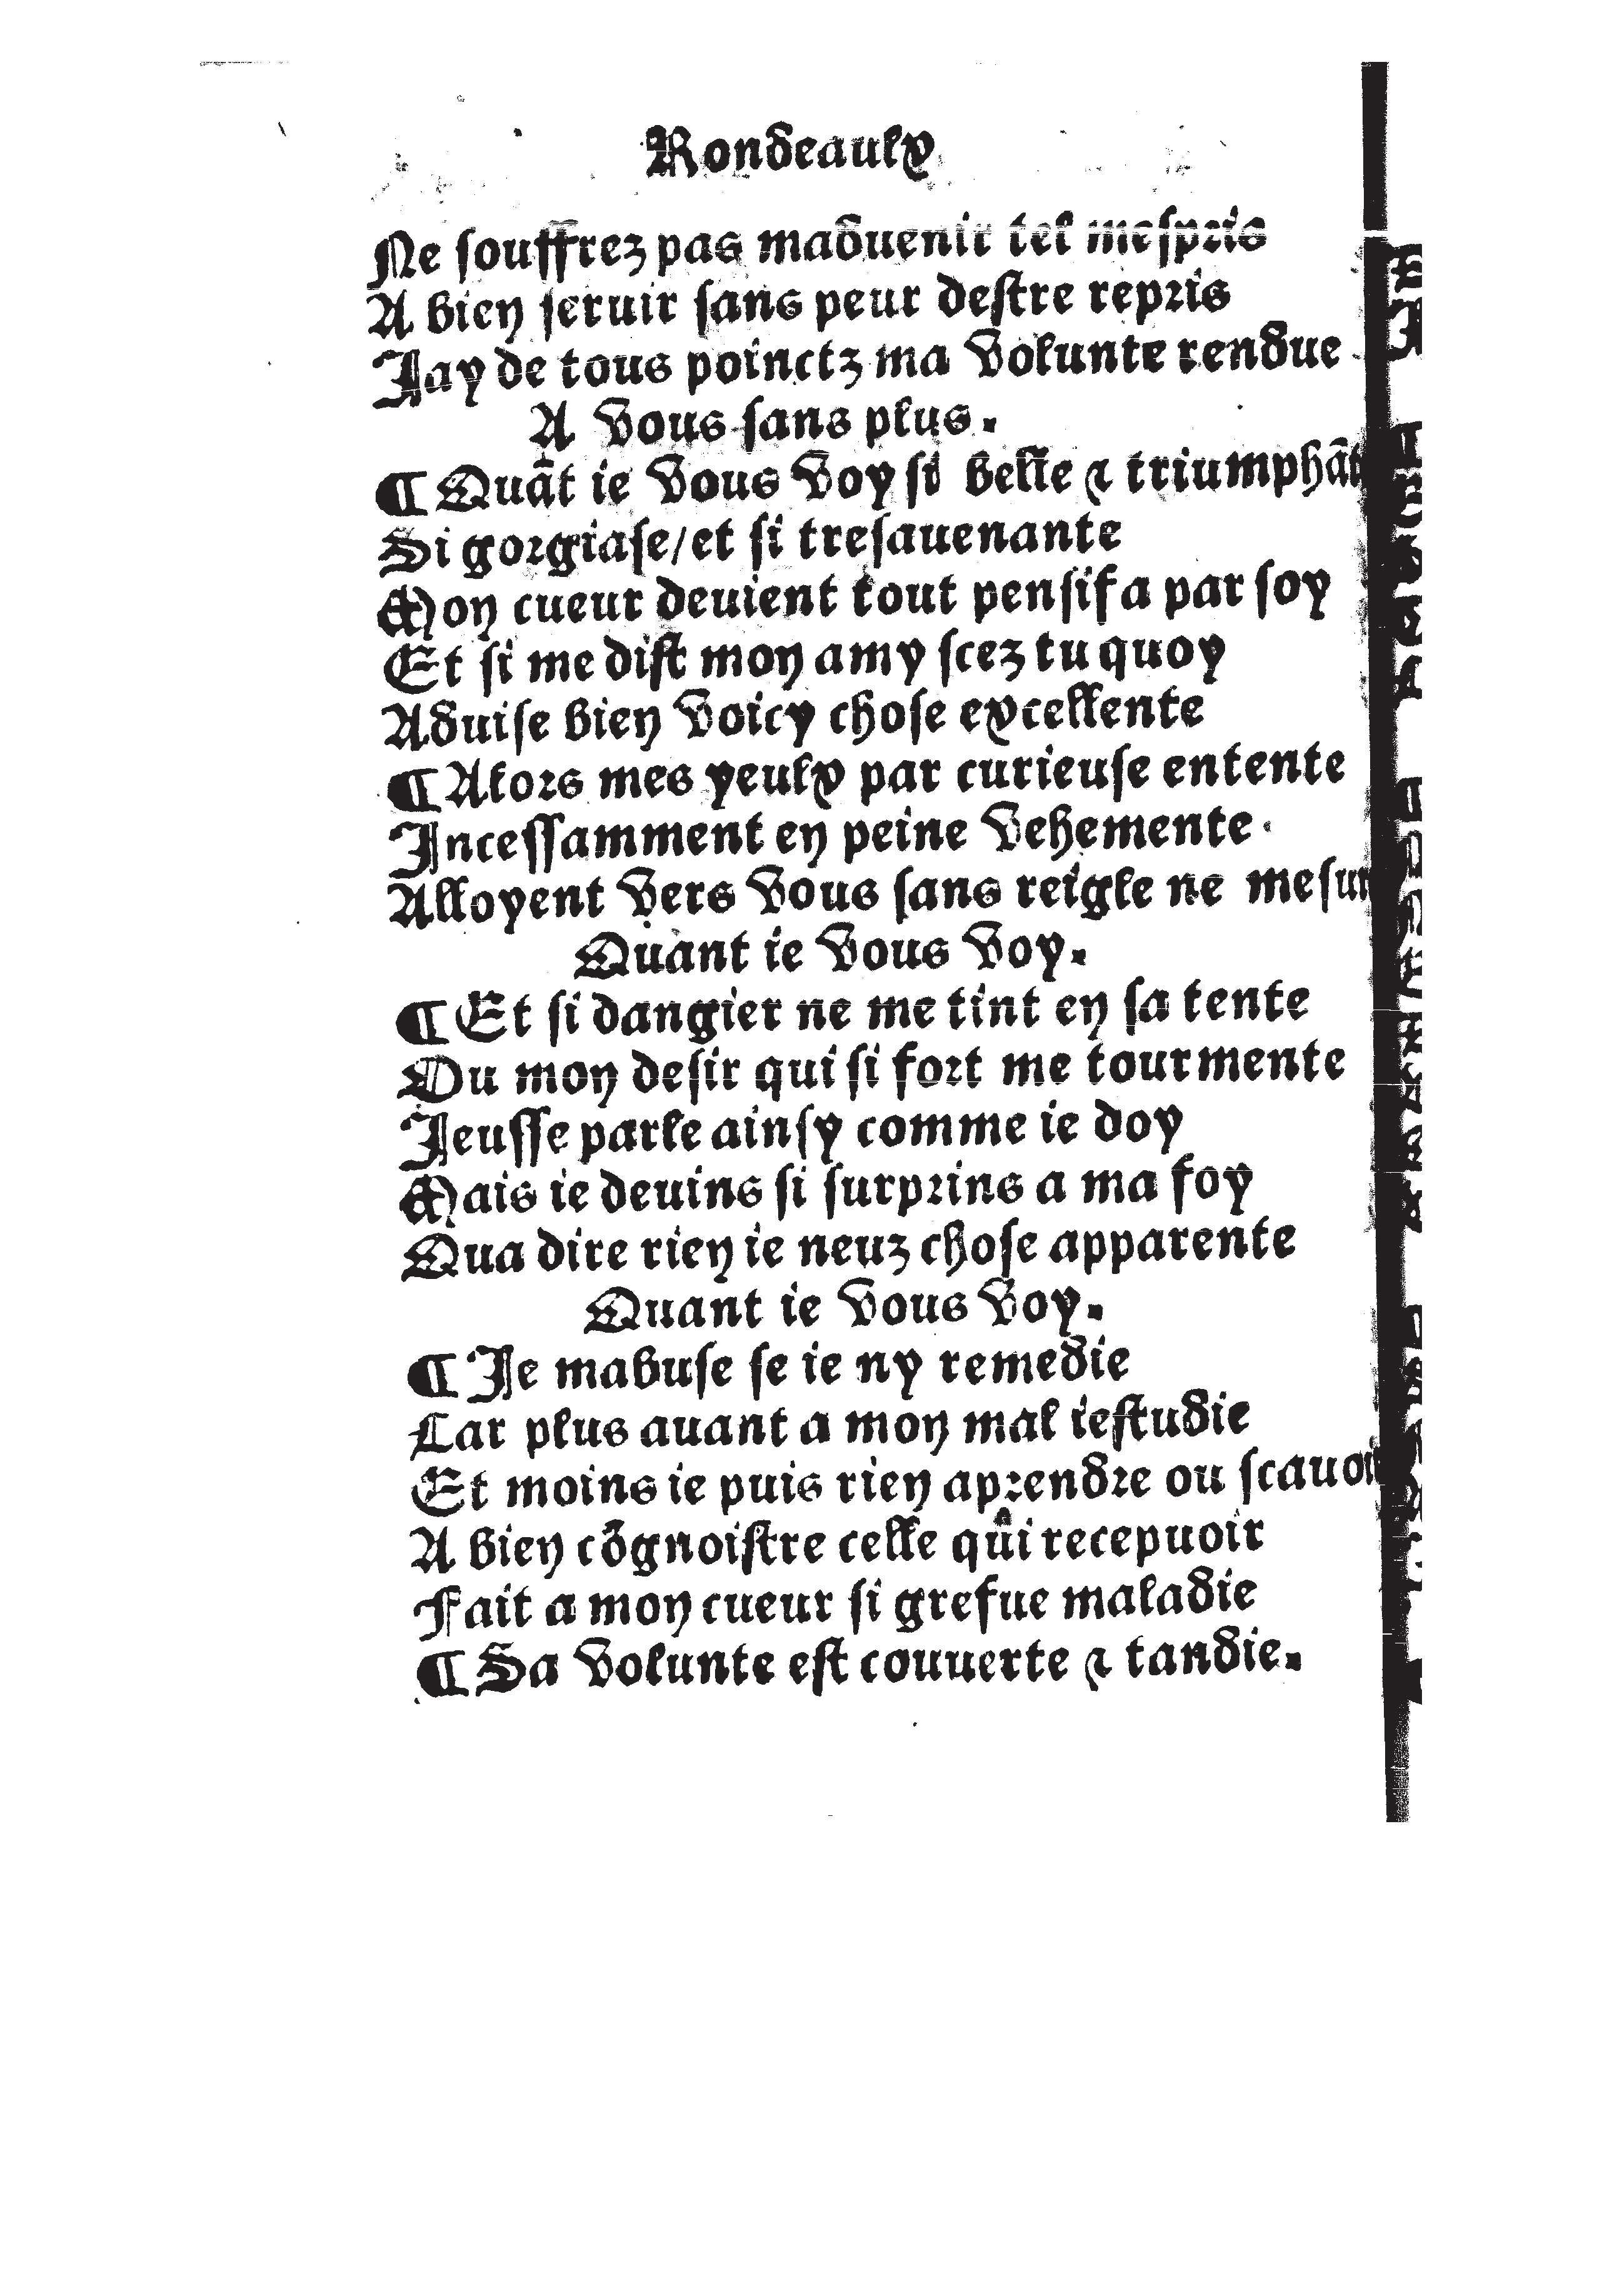 Rondeaulx
Ne souffrez pas maduenir tel mespris
A bien seruir sans peur destre repris
Jay de tous poinctz ma voulunte rendue
A vous sans plus.
¶ Quāt ie vous voy si belle ⁊ triumphāt
Si gorgiase/et si tresauenante
Mon cueur deuient tout pensif a par soy
Et si me dist mon amy scez tu quoy
Aduise bien voicy chose excellente
¶ Alors mes yeulx par curieuse entente
Incessamment en peine vehemente.
Alloyent vers vous sans reigle ne mesur
Quant ie vous voy.
¶ Et si dangier ne me tint en sa tente
Ou mon desir qui si fort me tourmente
Jeusse parle ainsy comme ie doy
Mais ie deuins si surprins a ma foy
Qua dire rien ie neuz chose apparente
Quant ie vous voy.
¶ Je mabuse se ie ny remedie
Car plus auant a mon mal iestudie
Et moins ie puis rien aprendre ou scauoi
A bien cōgnoistre celle qui recepuoir
Fait a mon cueur si grefue maladie
¶ Sa volunte est couuerte ⁊ tandie.